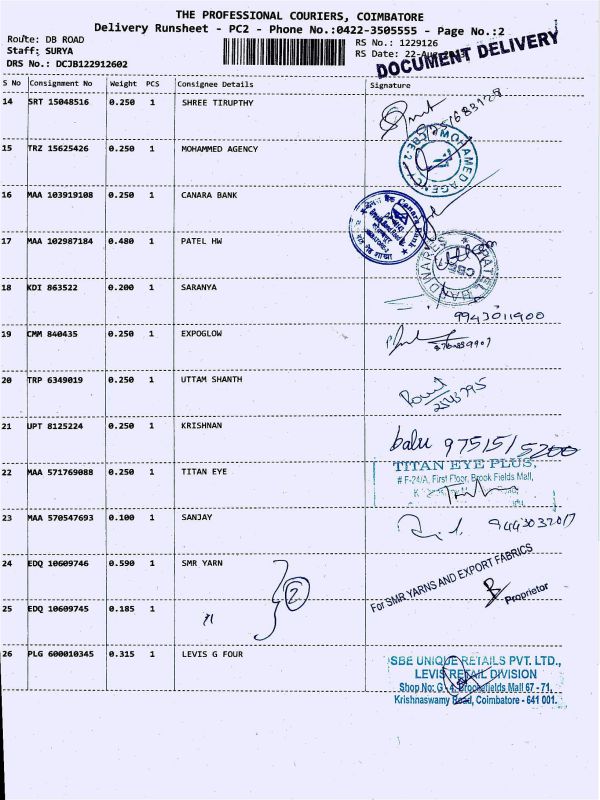 THE PROFESSIONAL COURIERS, COIMBATORE
Delivery Runsheet - PC2 - Phone No.:0422-3505555 - Page No.:2
Route: DB ROAD
RS No.: 1229126
Staff: SURYA
RS Date: 22-Aug
DRS No.: DCJB122912602
DOCUMENT DELIVERY
S No Consignment No Weight PCS Consignee Details Signature
14 SRT 15048516 0.250 1 SHREE TIRUPTHY
15 TRZ 15625426 0.250 1 MOHAMMED AGENCY
16 MAA 103919108 0.250 1 CANARA BANK
Canara Bank
17 MAA 102987184 0.480 1 PATEL HW
18 KDI 863522 0.200 1 SARANYA
9943011900
19 CMM 840435 0.250 1 EXPOGLOW
20 TRP 6349019 0.250 1 UTTAM SHANTH
21 UPT 8125224 0.250 1 KRISHNAN
balu 97515/5200
22 MAA 571769088 0.250 1 TITAN EYE
TITAN EYE PLUS,
# F-24/A, First Floor, Brook Fields Mall,
23 MAA 570547693 0.100 1 SANJAY
9443032017
24 EDQ 10609746 0.590 1 SMR YARN
2
For SMR YARNS AND EXPORT FABRICS
Proprietor
25 EDQ 10609745 0.185 1
26 PLG 600010345 0.315 1 LEVIS G FOUR
SBE UNIQUE RETAILS PVT. LTD.,
LEVIS RETAIL DIVISION
Shop No: G - 4, Brookefields Mall 67 - 71,
Krishnaswamy Road, Coimbatore - 641 001.